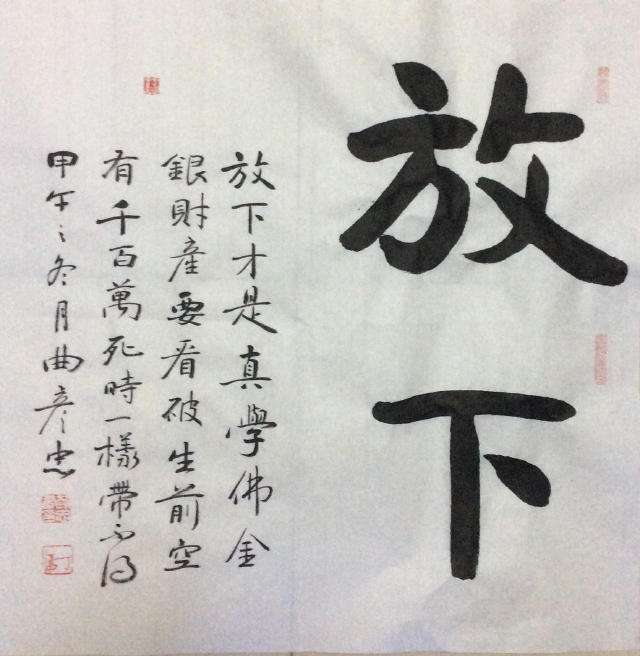 放下
放下才是真學佛金
銀財產要看破生前空
有千百萬死時一樣帶不得
甲午之冬月曲彦忠